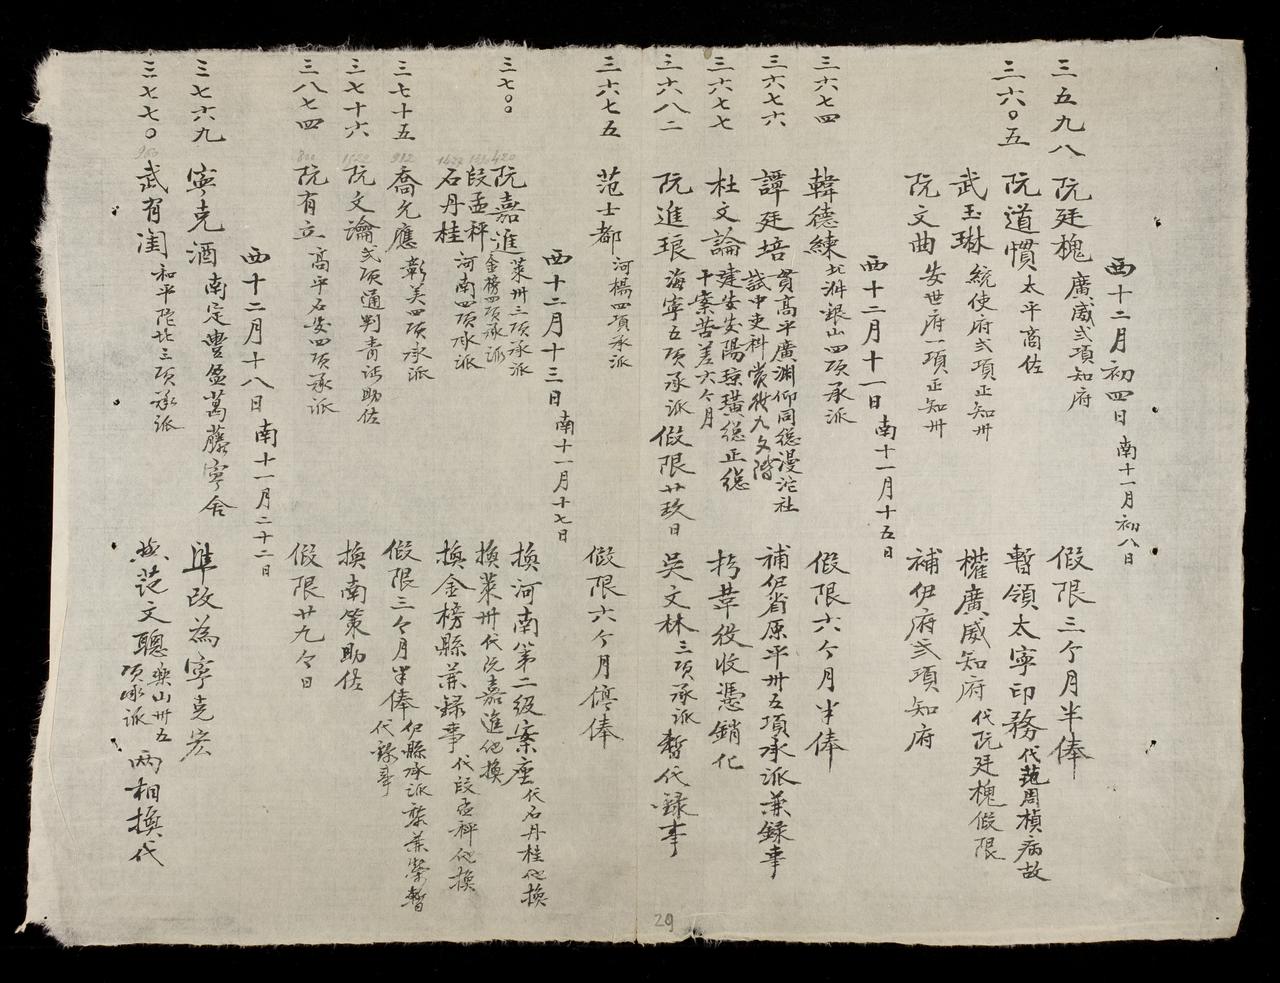 西十二月初四日 南十一月初八日
三五九八 阮廷槐 廣威弍項知府 假限三个月半俸
三六〇五 阮道慣 太平商佐 暫領太寧印務 代范周楨病故
武玉琳 統使府弍項正知州 權廣威知府 代阮廷槐假限
阮文曲 安世府一項正知州 補伊府弍項知府
西十二月十一日 南十一月十五日
三六七四 韓德練 北 銀山四項承派 假限六个月半俸
三六七六 譚廷培 貫高平廣淵仰同總漫沱社 試中吏科 九文階 補伊省原平州五項承派兼錄事
三六七七 杜文論 建安安陽瓊璜總正總 干案苦差六个月 葦役收憑銷化
三六八二 阮進琅 海寧五項承派 假限廿玖日 吳文林 三項承派 暫代錄事
三六七五 范士都 河楊四項承派 假限六个月停俸
西十二月十三日 南十一月十七日
三七〇〇 420 阮嘉進 萊州三項承派 換河南第二級案座 代石丹桂他換
段孟秤 金榜四項承派 換萊州 代阮嘉進他換
石丹桂 河南四項承派 換金榜縣兼錄事 代段孟秤他換
三七十五 912 喬允應 彰美四項承派 假限三个月半俸 伊縣承派 暫代錄事
三七十六 阮文瀹 弍項通判青 助佐 換南策助佐
三八七四 阮有立 高平石安四項承派 假限廿九个日
西十二月十八日 南十一月二十二日
三七六九 寧克酒 南定豐盈萬藤寧舍 準改為寧克宏
三七七〇 武有闺 和平陀北三項承派 換范文聰 樂山州五項承派 兩相換代
29